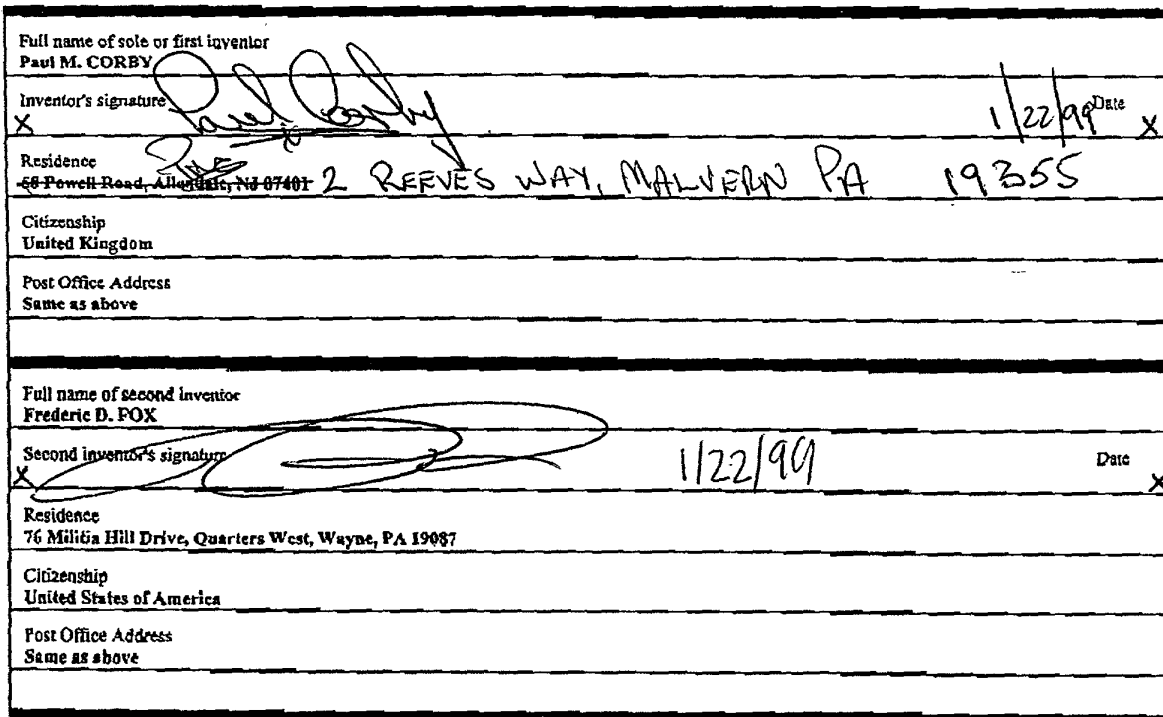 Full name of sole or first inventor
Paul M. CORBY
Inventor's signature
X Paul Corby 1/22/99 Date X
Residence
Powell Road, NJ 07401 2 REEVES WAY, MALVERN PA 19355
Citizenship
United Kingdom
Post Office Address
Same as above
Full name of second inventor
Frederic D. FOX
Second inventor's signature 1/22/99 Date
X X
Residence
76 Militia Hill Drive, Quarters West, Wayne, PA 19087
Citizenship
United States of America
Post Office Address
Same as above